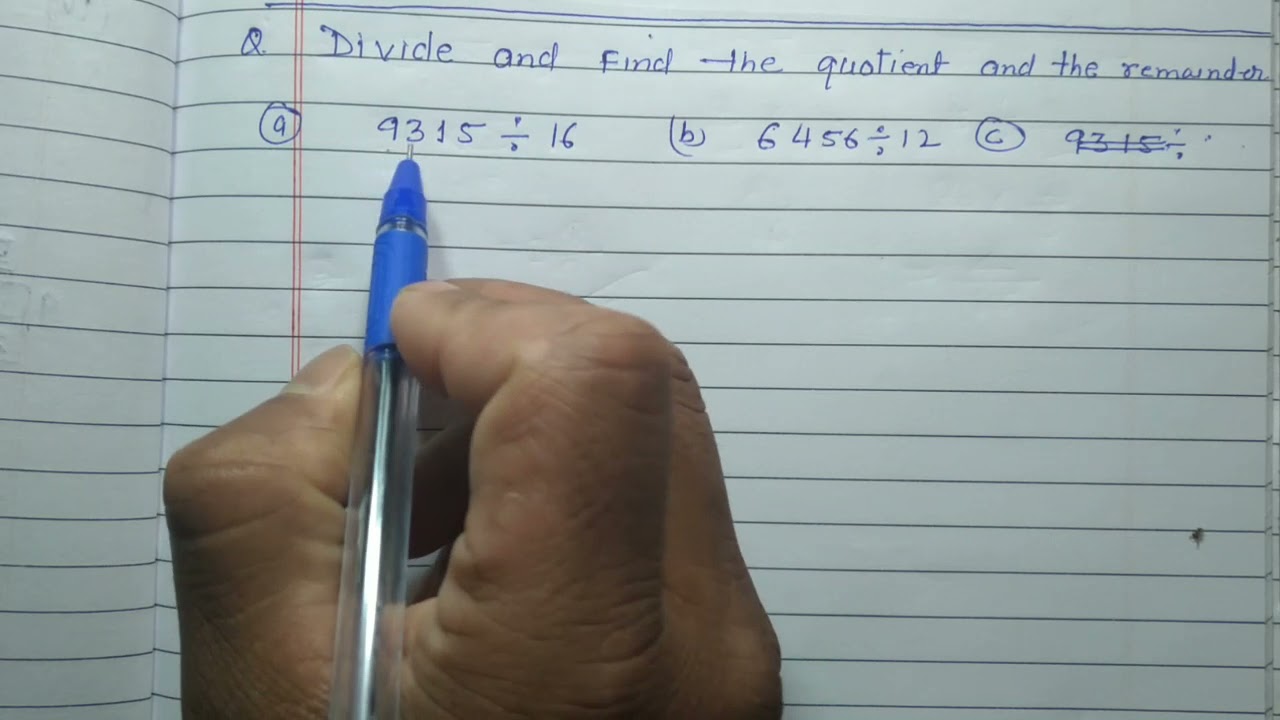 Q Divide and Find the quotient and the remainder
(a) 9315 ÷ 16 (b) 6456 ÷ 12 (c) 9315 ÷